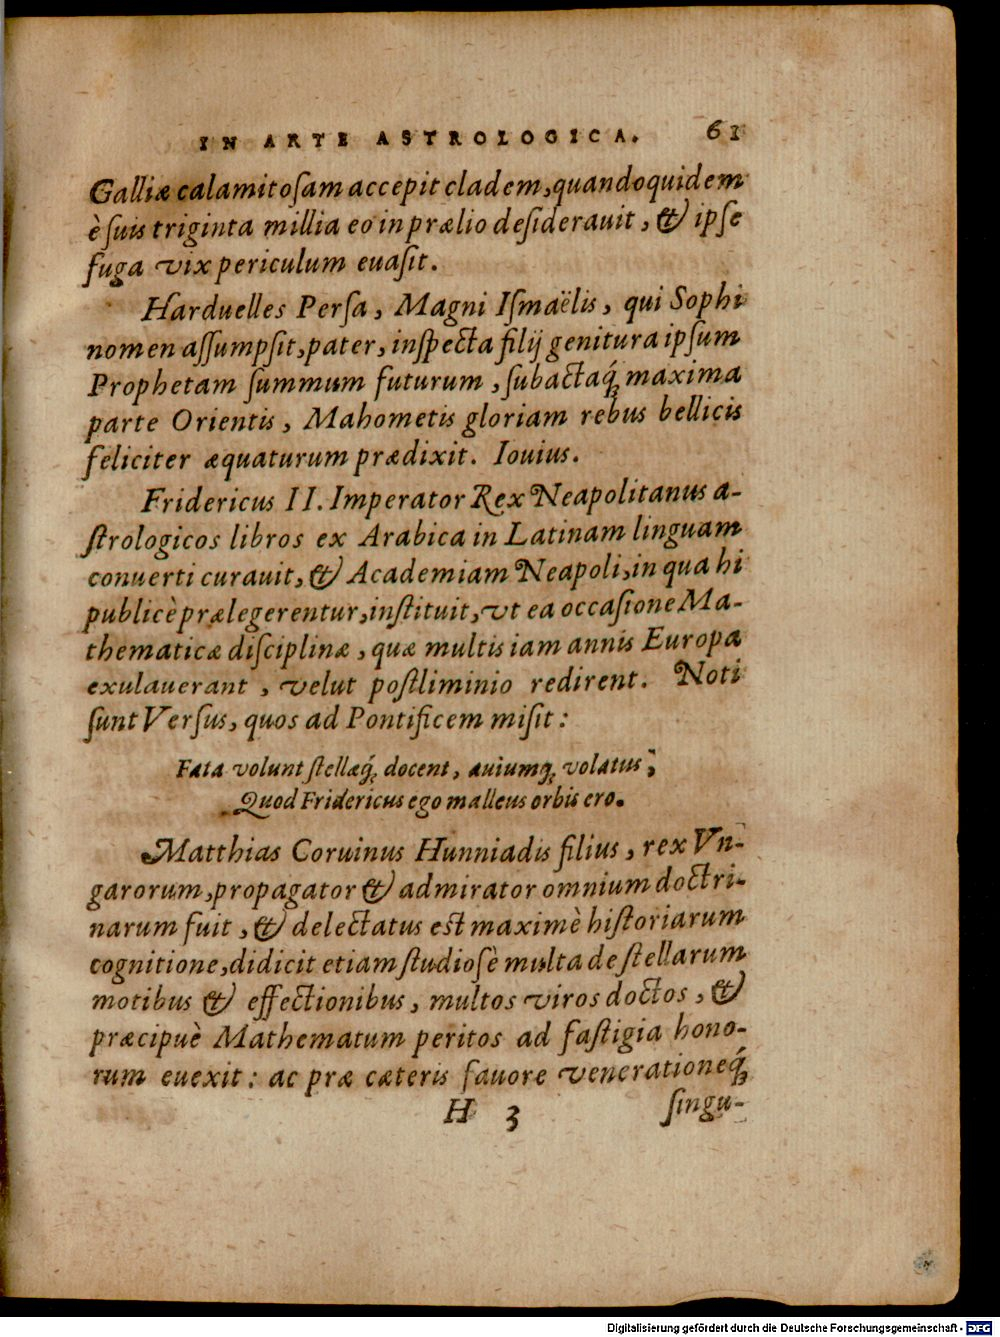 IN ARTE ASTROLOGICA. 61
Galliæ calamitoſam accepit cladem, quandoquidem
è ſuis triginta millia eo in prælio deſiderauit, & ipſe
fuga vix periculum euaſit.
Harduelles Perſa, Magni Iſmaëlis, qui Sophi
nomen aſſumpſit, pater, inſpecta filij genitura ipſum
Prophetam ſummum futurum, ſubactaq́; maxima
parte Orientis, Mahometis gloriam rebus bellicis
feliciter æquaturum prædixit. Iouius.
Fridericus II. Imperator Rex Neapolitanus a-
ſtrologicos libros ex Arabica in Latinam linguam
conuerti curauit, & Academiam Neapoli, in qua hi
publicè prælegerentur, inſtituit, vt ea occaſione Ma-
thematicæ diſciplinæ, quæ multis iam annis Europa
exulauerant, velut poſtliminio redirent. Noti
ſunt Verſus, quos ad Pontificem miſit:
Fata volunt ſtellæq́; docent, auiumq; volatus;
Quod Fridericus ego malleus orbis ero.
Matthias Coruinus Hunniadis filius, rex Vn-
garorum, propagator & admirator omnium doctri-
narum fuit, & delectatus eſt maximè hiſtoriarum
cognitione, didicit etiam ſtudioſè multa de ſtellarum
motibus & effectionibus, multos viros doctos, &
præcipuè Mathematum peritos ad faſtigia hono-
rum euexit: ac præ cæteris fauore venerationeq́;
H 3 ſingu-
Digitalisierung gefördert durch die Deutsche Forschungsgemeinschaft - DFG